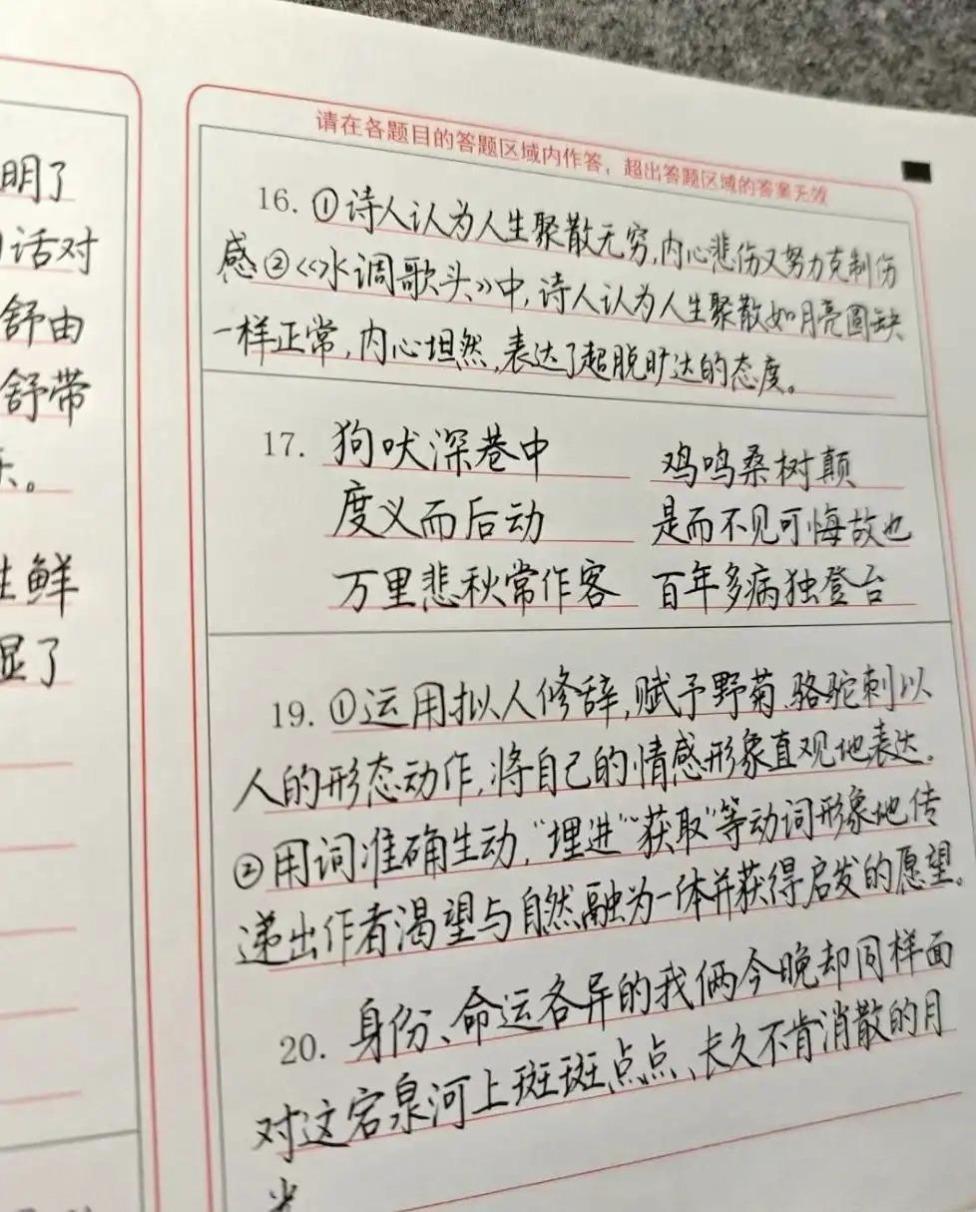 明了
话对
舒由
舒带
。
鲜
显了
请在各题目的答题区域内作答，超出答题区域的答案无效
16. ①诗人认为人生聚散无穷,内心悲伤又努力克制伤
感②《水调歌头》中,诗人认为人生聚散如月亮圆缺
一样正常,内心坦然,表达了超脱旷达的态度。
17. 狗吠深巷中 鸡鸣桑树颠
度义而后动 是而不见可悔故也
万里悲秋常作客 百年多病独登台
19. ①运用拟人修辞,赋予野菊、骆驼刺以
人的形态动作,将自己的情感形象直观地表达。
②用词准确生动,“埋进”“获取”等动词形象地传
递出作者渴望与自然融为一体并获得启发的愿望。
20. 身份、命运各异的我俩今晚却同样面
对这宕泉河上斑斑点点、长久不肯消散的月
光